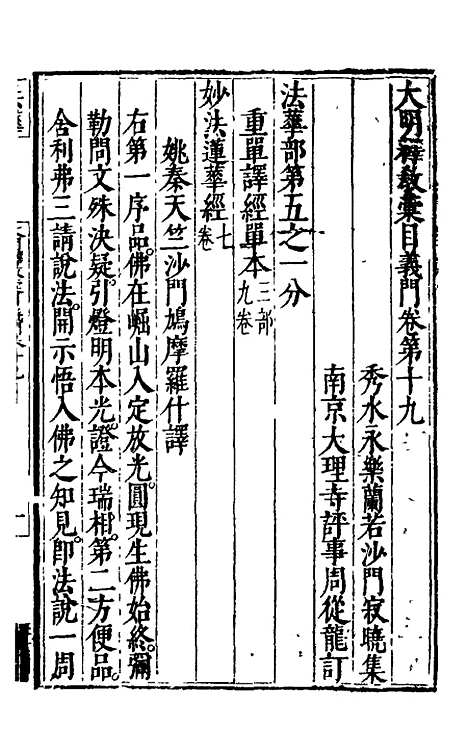 大明釋教彙目義門卷第十九
秀水永樂蘭若沙門寂曉集
南京大理寺評事周從龍訂
法華部第五之一分
重單譯經單本三部九卷
妙法蓮華經七卷
姚秦天竺沙門鳩摩羅什譯
右第一序品。佛在崛山入定放光。圓現生佛始終。彌
勒問文殊決疑。引燈明本光。證今瑞相。第二方便品。
舍利弗三請說法。開示悟入佛之知見。卽法說一周